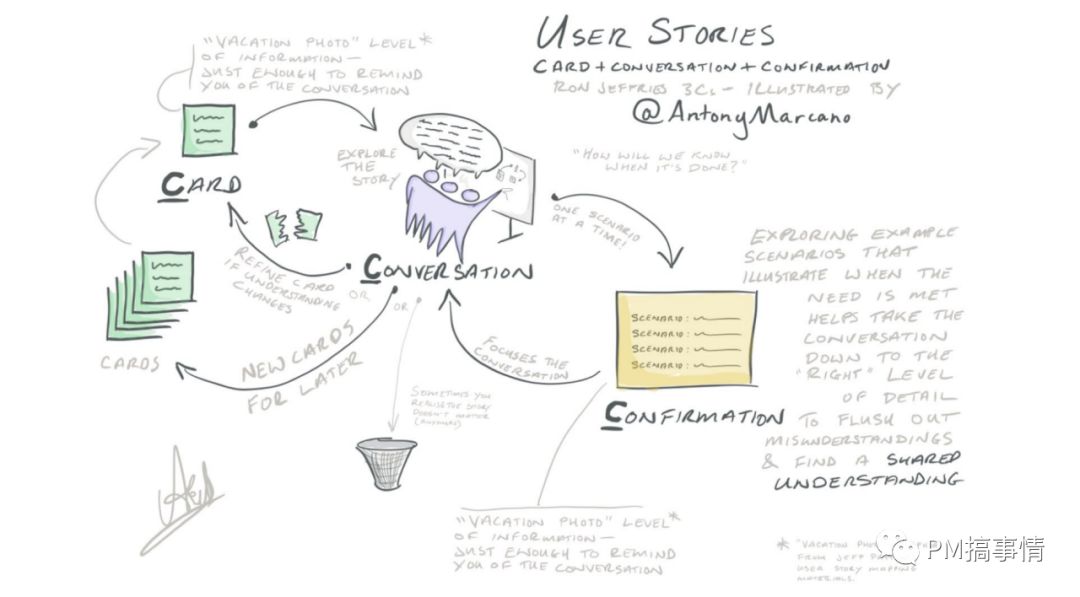 USER STORIES
CARD + CONVERSATION + CONFIRMATION
RON JEFFRIES 3CS - ILLUSTRATED BY
@AntonyMarcano
"VACATION PHOTO" LEVEL*
OF INFORMATION —
JUST ENOUGH TO REMIND
YOU OF THE CONVERSATION
CARD
EXPLORE
THE
STORY
"HOW WILL WE KNOW
WHEN IT'S DONE?"
ONE SCENARIO
AT A TIME!
CONVERSATION
REFINE CARD
IF UNDERSTANDING
CHANGES
OR
OR
CARDS
NEW CARDS
FOR LATER
FOCUSES THE
CONVERSATION
SOMETIMES YOU
REALISE THE STORY
DOESN'T MATTER
(ANYMORE)
SCENARIO:
SCENARIO:
SCENARIO:
SCENARIO:
CONFIRMATION
EXPLORING EXAMPLE
SCENARIOS THAT
ILLUSTRATE WHEN THE
NEED IS MET
HELPS TAKE THE
CONVERSATION
DOWN TO THE
"RIGHT" LEVEL
OF DETAIL
TO FLUSH OUT
MISUNDERSTANDINGS
& FIND A SHARED
UNDERSTANDING
"VACATION PHOTO" LEVEL*
OF INFORMATION —
JUST ENOUGH TO REMIND
YOU OF THE CONVERSATION
* "VACATION
FROM JEFF
USER STORY MAPPING
MATERIALS.
PM搞事情